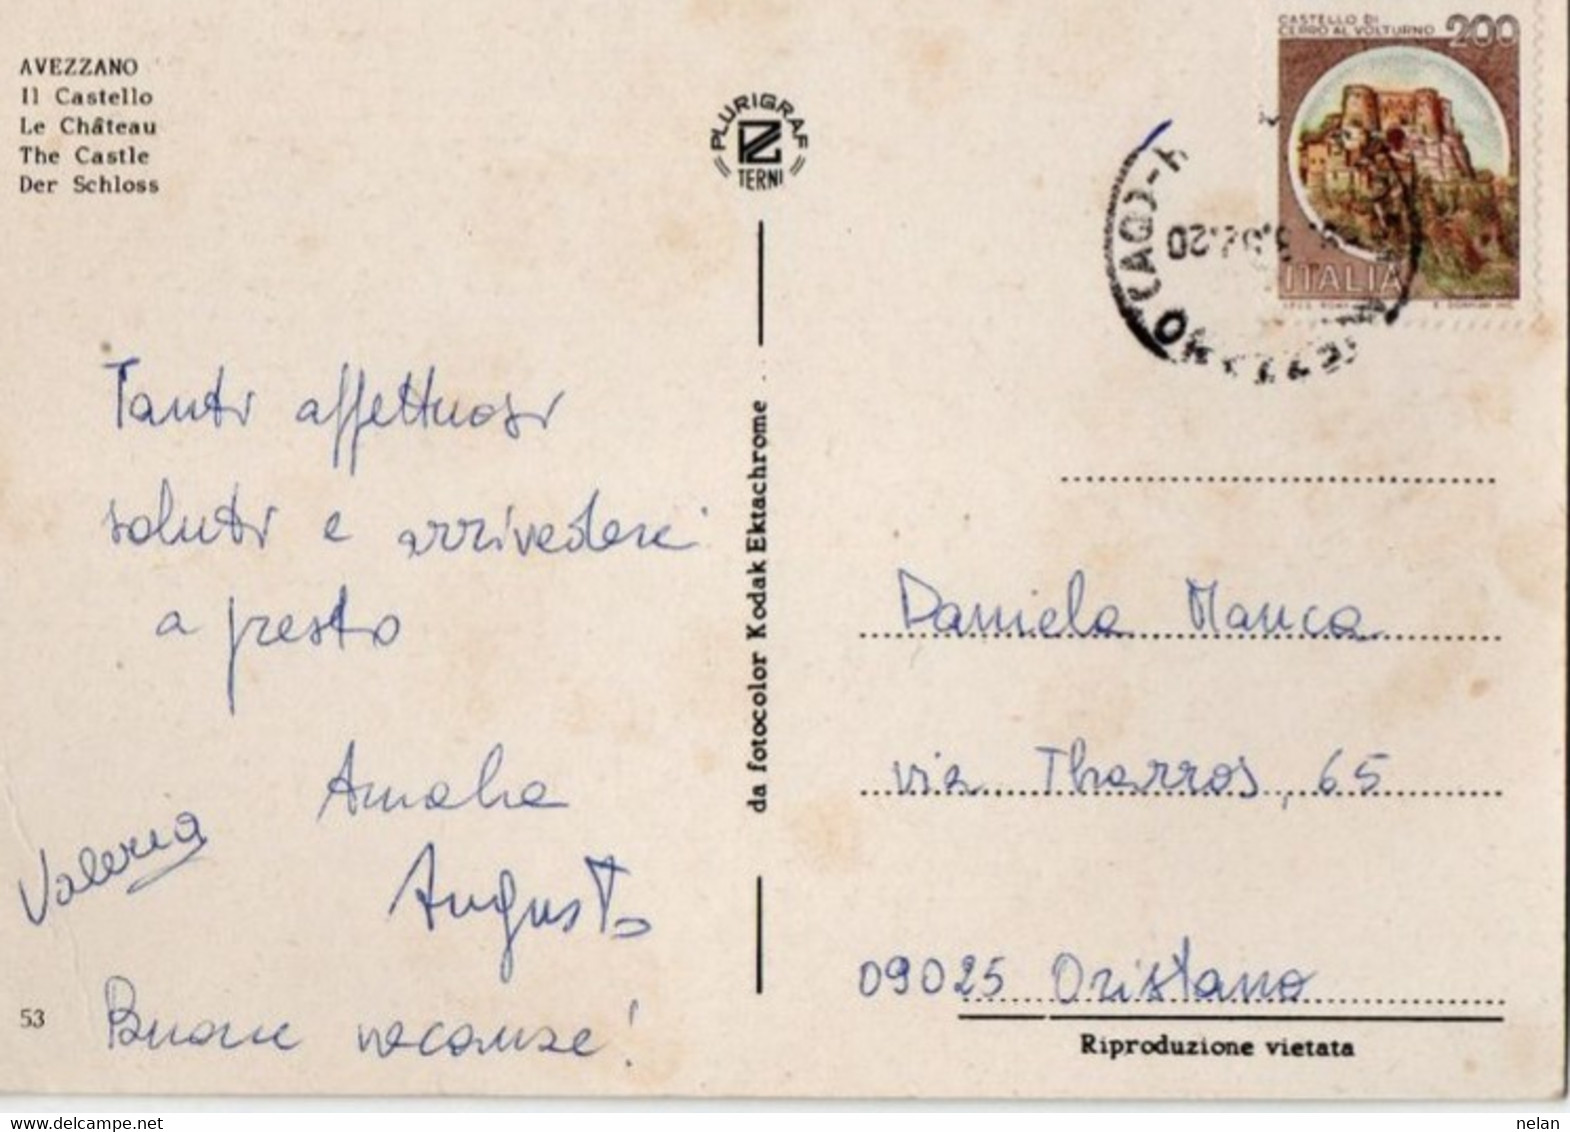 AVEZZANO
Il Castello
Le Château
The Castle
Der Schloss
PLURIGRAF
TERNI
CASTELLO DI
CERRO AL VOLTURNO 200
ITALIA
Tanti affettuosi
saluti e arrivederci
a presto
Amalia
Valeria
Augusto
Buone vacanze!
53
da fotocolor Kodak Ektachrome
Daniela Manca
via Tharros, 65
09025 Oristano
Riproduzione vietata
nelan